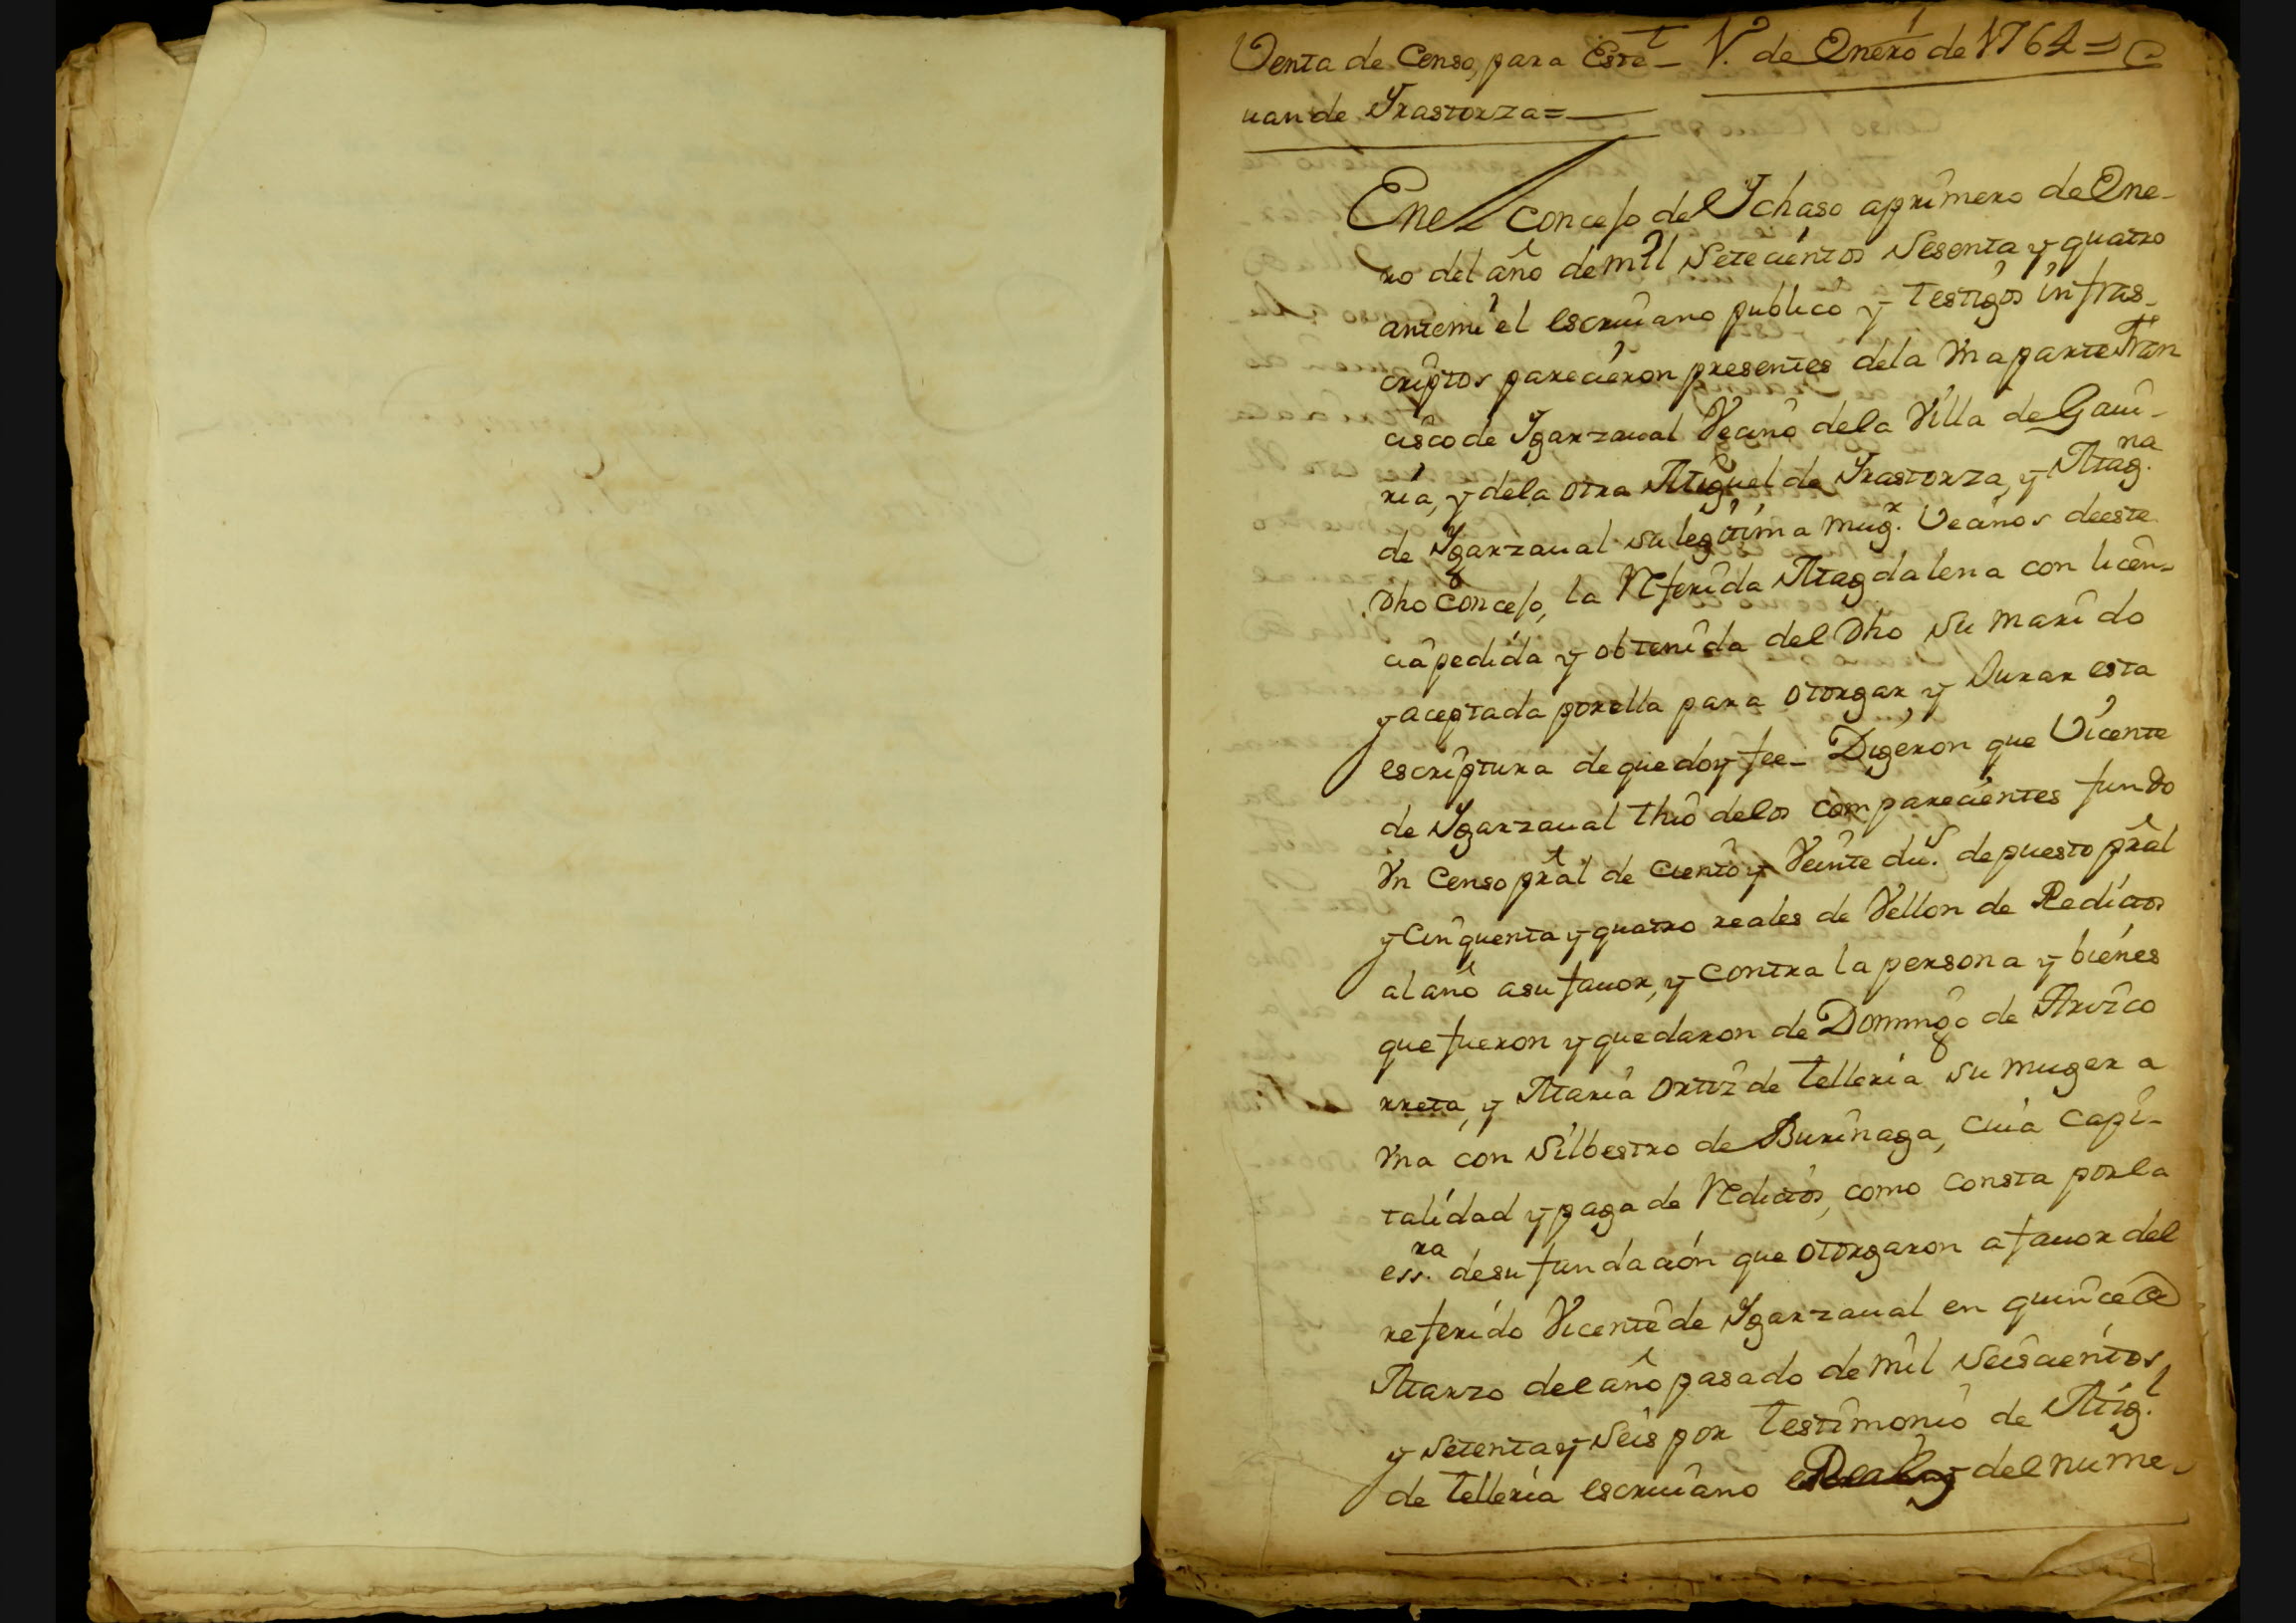 Venta de Censo, para Este- V. de Enero de 1764 =
uan de Yrastorza =
En el Concejo de Ychaso a primero de Ene-
ro del año de mil Setecientos Sesenta y quatro
ante mi el escriuano publico y testigos infras-
criptos parecieron presentes de la Vna parte Fran
cisco de Ygarzaual Vecino de la Villa de Gaui-
ria, y de la otra Miguel de Yrastorza, y Mag.na
de Ygarzaual su legitima mug.r Vecinos de este
dho Concejo, la Referida Magdalena con licen-
cia pedida y obtenida del dho su marido
y aceptada por ella para otorgar y Jurar esta
escriptura de que doy fee- Digeron que Vicente
de Ygarzaual thio de los comparecientes fundo
Vn Censo pral de ciento y Veinte du.s de puesto pral
y Cinquenta y quatro reales de Vellon de Redictos
al año a su fauor, y contra la persona y bienes
que fueron y quedaron de Domingo de Aruico
rreta, y Maria Ortiz de Telleria su muger a
Vna con Silbestro de Burinaga, cuia capi-
talidad y paga de Redictos, como consta por la
ess.ra de su fundacion que otorgaron a fauor del
referido Vicente de Ygarzaual en quince de
Marzo del año pasado de mil Seiscientos
y Setenta y Seis por testimonio de Mig.l
de Telleria escriuano del nume-